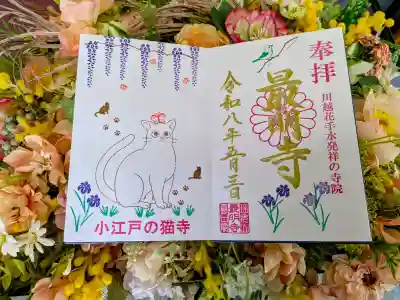 奉拝
川越花手水発祥の寺院
最明寺
令和八年五月三日
小江戸の猫寺